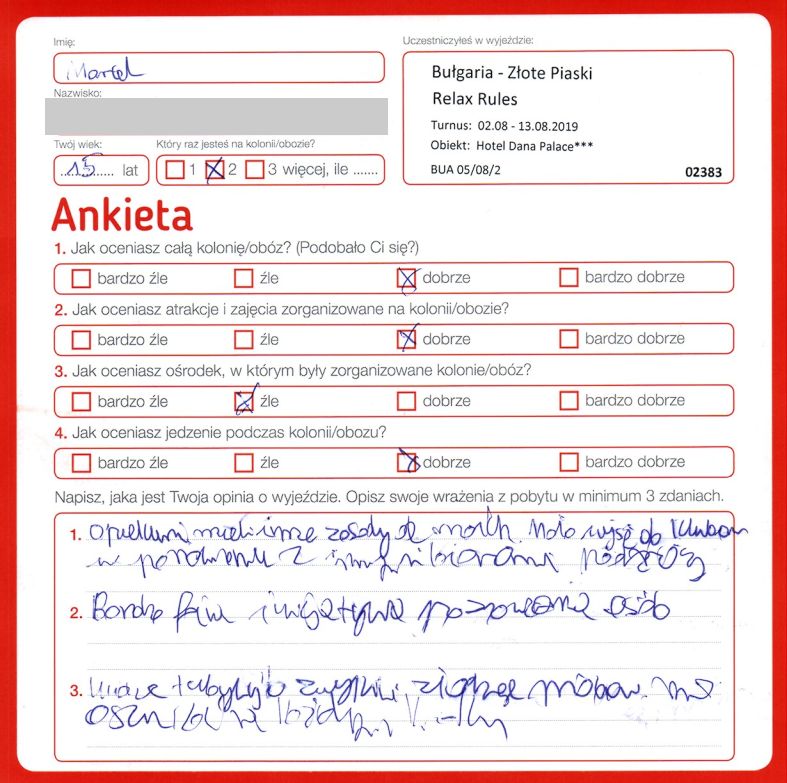 Imię:
Marcel
Uczestniczyłeś w wyjeździe:
Bułgaria - Złote Piaski
Relax Rules
Turnus: 02.08 - 13.08.2019
Obiekt: Hotel Dana Palace***
BUA 05/08/2
02383
Nazwisko:
Twój wiek:
15 lat
Który raz jesteś na kolonii/obozie?
1 2 3 więcej, ile .......
Ankieta
1. Jak oceniasz całą kolonię/obóz? (Podobało Ci się?)
bardzo źle źle dobrze bardzo dobrze
2. Jak oceniasz atrakcje i zajęcia zorganizowane na kolonii/obozie?
bardzo źle źle dobrze bardzo dobrze
3. Jak oceniasz ośrodek, w którym były zorganizowane kolonie/obóz?
bardzo źle źle dobrze bardzo dobrze
4. Jak oceniasz jedzenie podczas kolonii/obozu?
bardzo źle źle dobrze bardzo dobrze
Napisz, jaka jest Twoja opinia o wyjeździe. Opisz swoje wrażenia z pobytu w minimum 3 zdaniach.
1. Opiekuni mieli inne zasady do Mało wyjść do klubów
w porównaniu z innymi biurami podróży
2. Bardzo fajna inicjatywa poznawania osób
3.